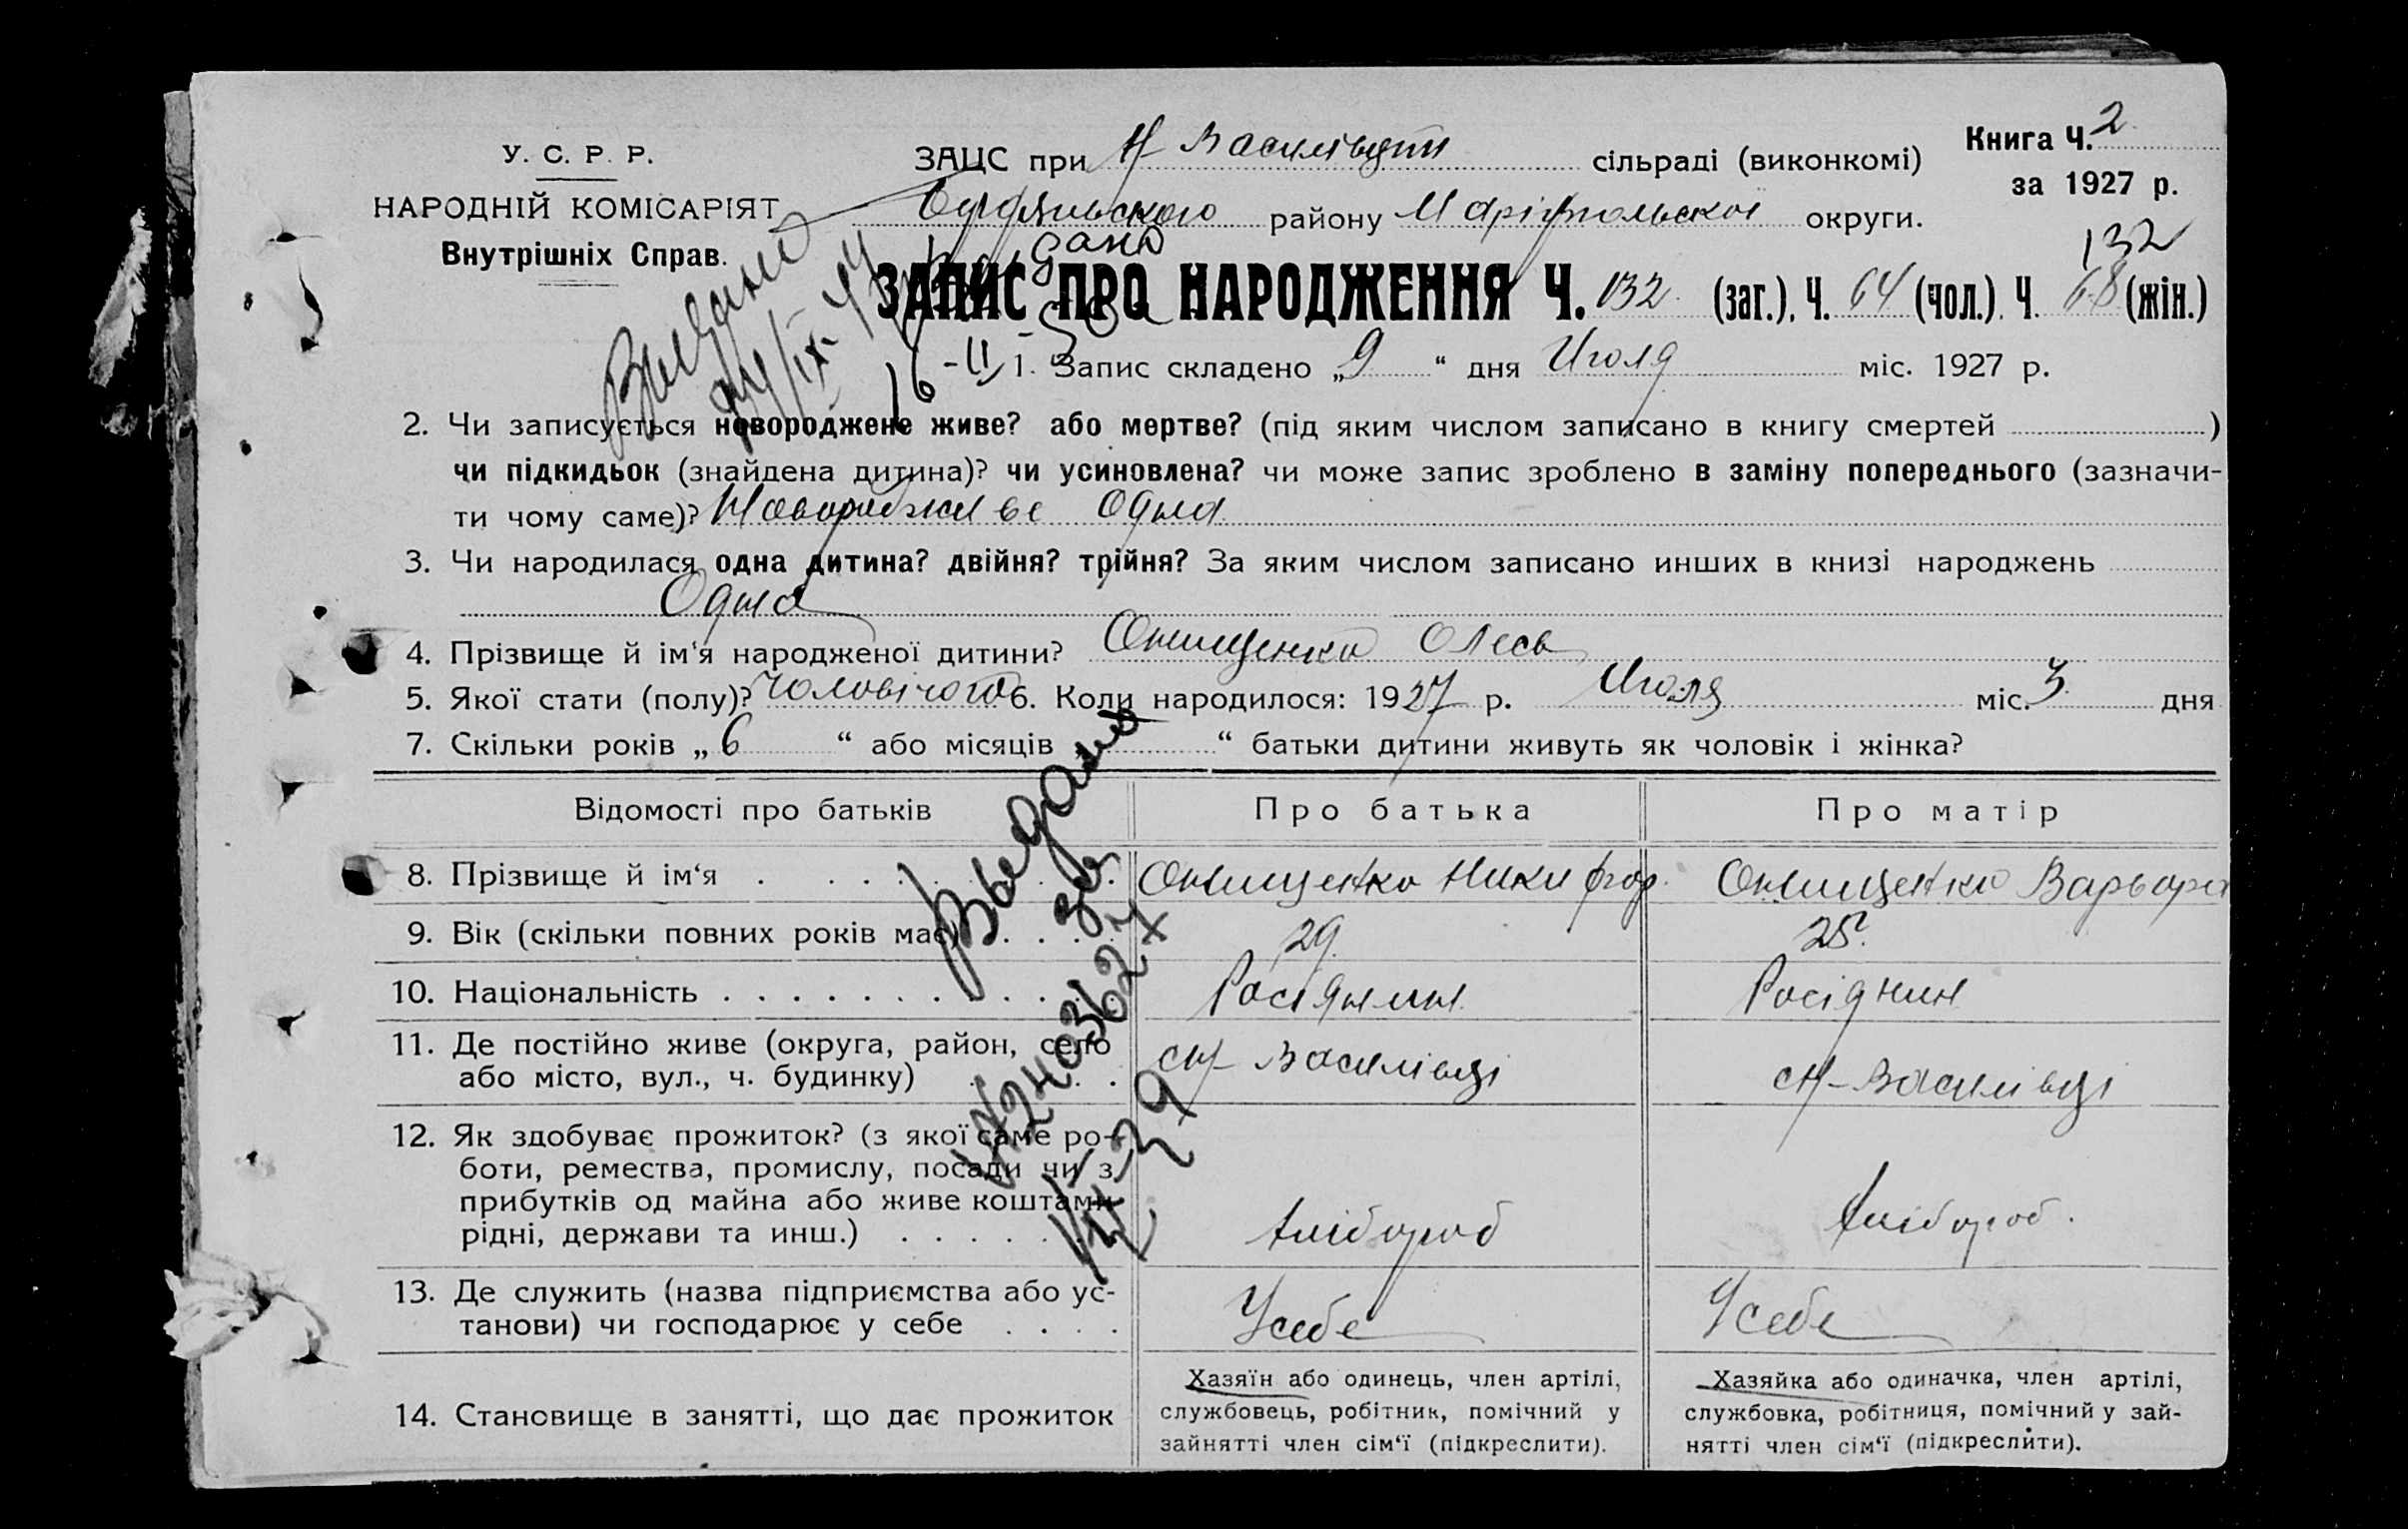 У. С. Р. Р.
НАРОДНІЙ КОМІСАРІЯТ
Внутрішніх Справ.
ЗАЦС при Н-Василівцти сільраді (виконкомі)
району Маріупольської округи.
Книга Ч. 2
за 1927 р.
132
ЗАПИС ПРО НАРОДЖЕННЯ Ч. 132 (заг.), Ч. 64 (чол.). Ч. 68 (жін.)
1. Запис складено „9“ дня Июля міс. 1927 р.
2. Чи записується новороджене живе? або мертве? (під яким числом записано в книгу смертей )
чи підкидьок (знайдена дитина)? чи усиновлена? чи може запис зроблено в заміну попереднього (зазначи-
ти чому саме)? Одна
3. Чи народилася одна дитина? двійня? трійня? За яким числом записано инших в книзі народжень
Одна
4. Прізвище й ім'я народженої дитини? Онищенко Олесь
5. Якої стати (полу)? Чоловічого 6. Коли народилося: 1927 р. Июля міс. 3 дня
7. Скільки років „6“ або місяців “ батьки дитини живуть як чоловік і жінка?
Відомості про батьків Про батька Про матір
8. Прізвище й ім'я Онищенко Никифор. Онищенко Варвара
9. Вік (скільки повних років має) 29. 25.
10. Національність Росіянин Росіянин
11. Де постійно живе (округа, район, село
або місто, вул., ч. будинку) с Н-Василівці с Н-Василівці
12. Як здобуває прожиток? (з якої саме ро-
боти, ремества, промислу, посади чи з
прибутків од майна або живе коштами
рідні, держави та инш.) Хлібороб Хлібороб.
13. Де служить (назва підприємства або ус-
танови) чи господарює у себе Усебе Усебе
14. Становище в занятті, що дає прожиток
Хазяїн або одинець, член артілі,
службовець, робітник, помічний у
зайнятті член сім'ї (підкреслити).
Хазяйка або одиначка, член артілі,
службовка, робітниця, помічний у зай-
нятті член сім'ї (підкреслити).
Выдано
Выдано
за
№2403627